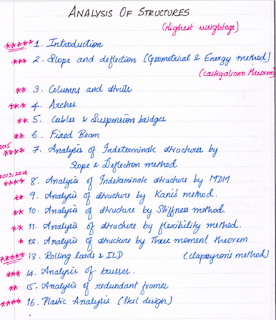 ANALYSIS OF STRUCTURES
(Highest weightage)
***** 1. Introduction
*** 2. Slope and deflection (Geometrical & Energy method)
(castiglianos theorem)
** 3. Columns and struts
** 4. Arches
** 5. Cables & Suspension bridges
** 6. Fixed Beam
**** 7. Analysis of Indeterminate structures by
Slope & Deflection method
2013, 2014
**** 8. Analysis of Indeterminate structure by MDM
** 9. Analysis of structure by Kani's method.
** 10. Analysis of structure by Stiffness method
** 11. Analysis of structure by flexibility method.
* 12. Analysis of structure by Three moment theorem
***** 13. Rolling Loads & ILD (clapeyron's method)
*** 14. Analysis of trusses.
** 15. Analysis of redundant frames
**** 16. Plastic Analysis (Steel design)